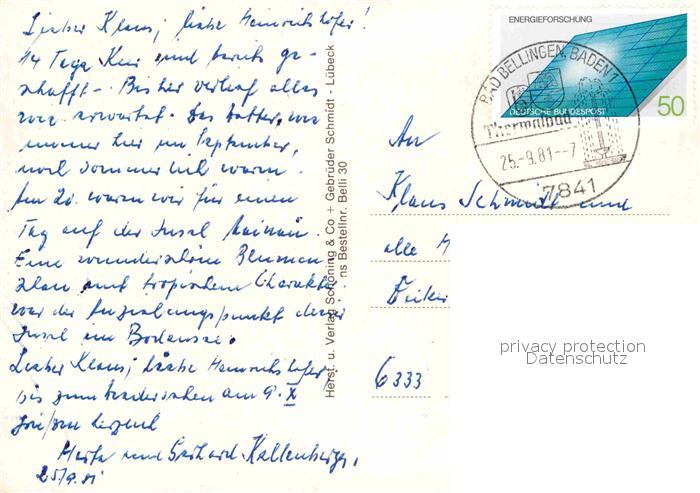 Lieber Klaus, liebe Heinrichshofer!
14 Tage Kur sind bereits ge-
schafft. Bisher verlief alles
wie erwartet. Das Wetter, wie
immer hier im September,
noch sommerlich warm.
Am 20. waren wir für einen
Tag auf der Insel Mainau.
Eine wunderschöne Blumen
mit tropischem Charakter
war der Anziehungspunkt dieser
Insel im Bodensee.
Lieber Klaus, liebe Heinrichshofer
bis zum Wiedersehen am 9. X
grüßen herzlich
Herta und Gerhard Kallenberger,
25/9.81
Herst. u. Verlag Schöning & Co + Gebrüder Schmidt - Lübeck
ns Bestellnr. Belli 30
ENERGIEFORSCHUNG
DEUTSCHE BUNDESPOST
50
BAD BELLINGEN, BADEN 1
Thermalbad
25.-9.81--7
7841
An
Klaus Schmidt und
alle H
6333
privacy protection
Datenschutz